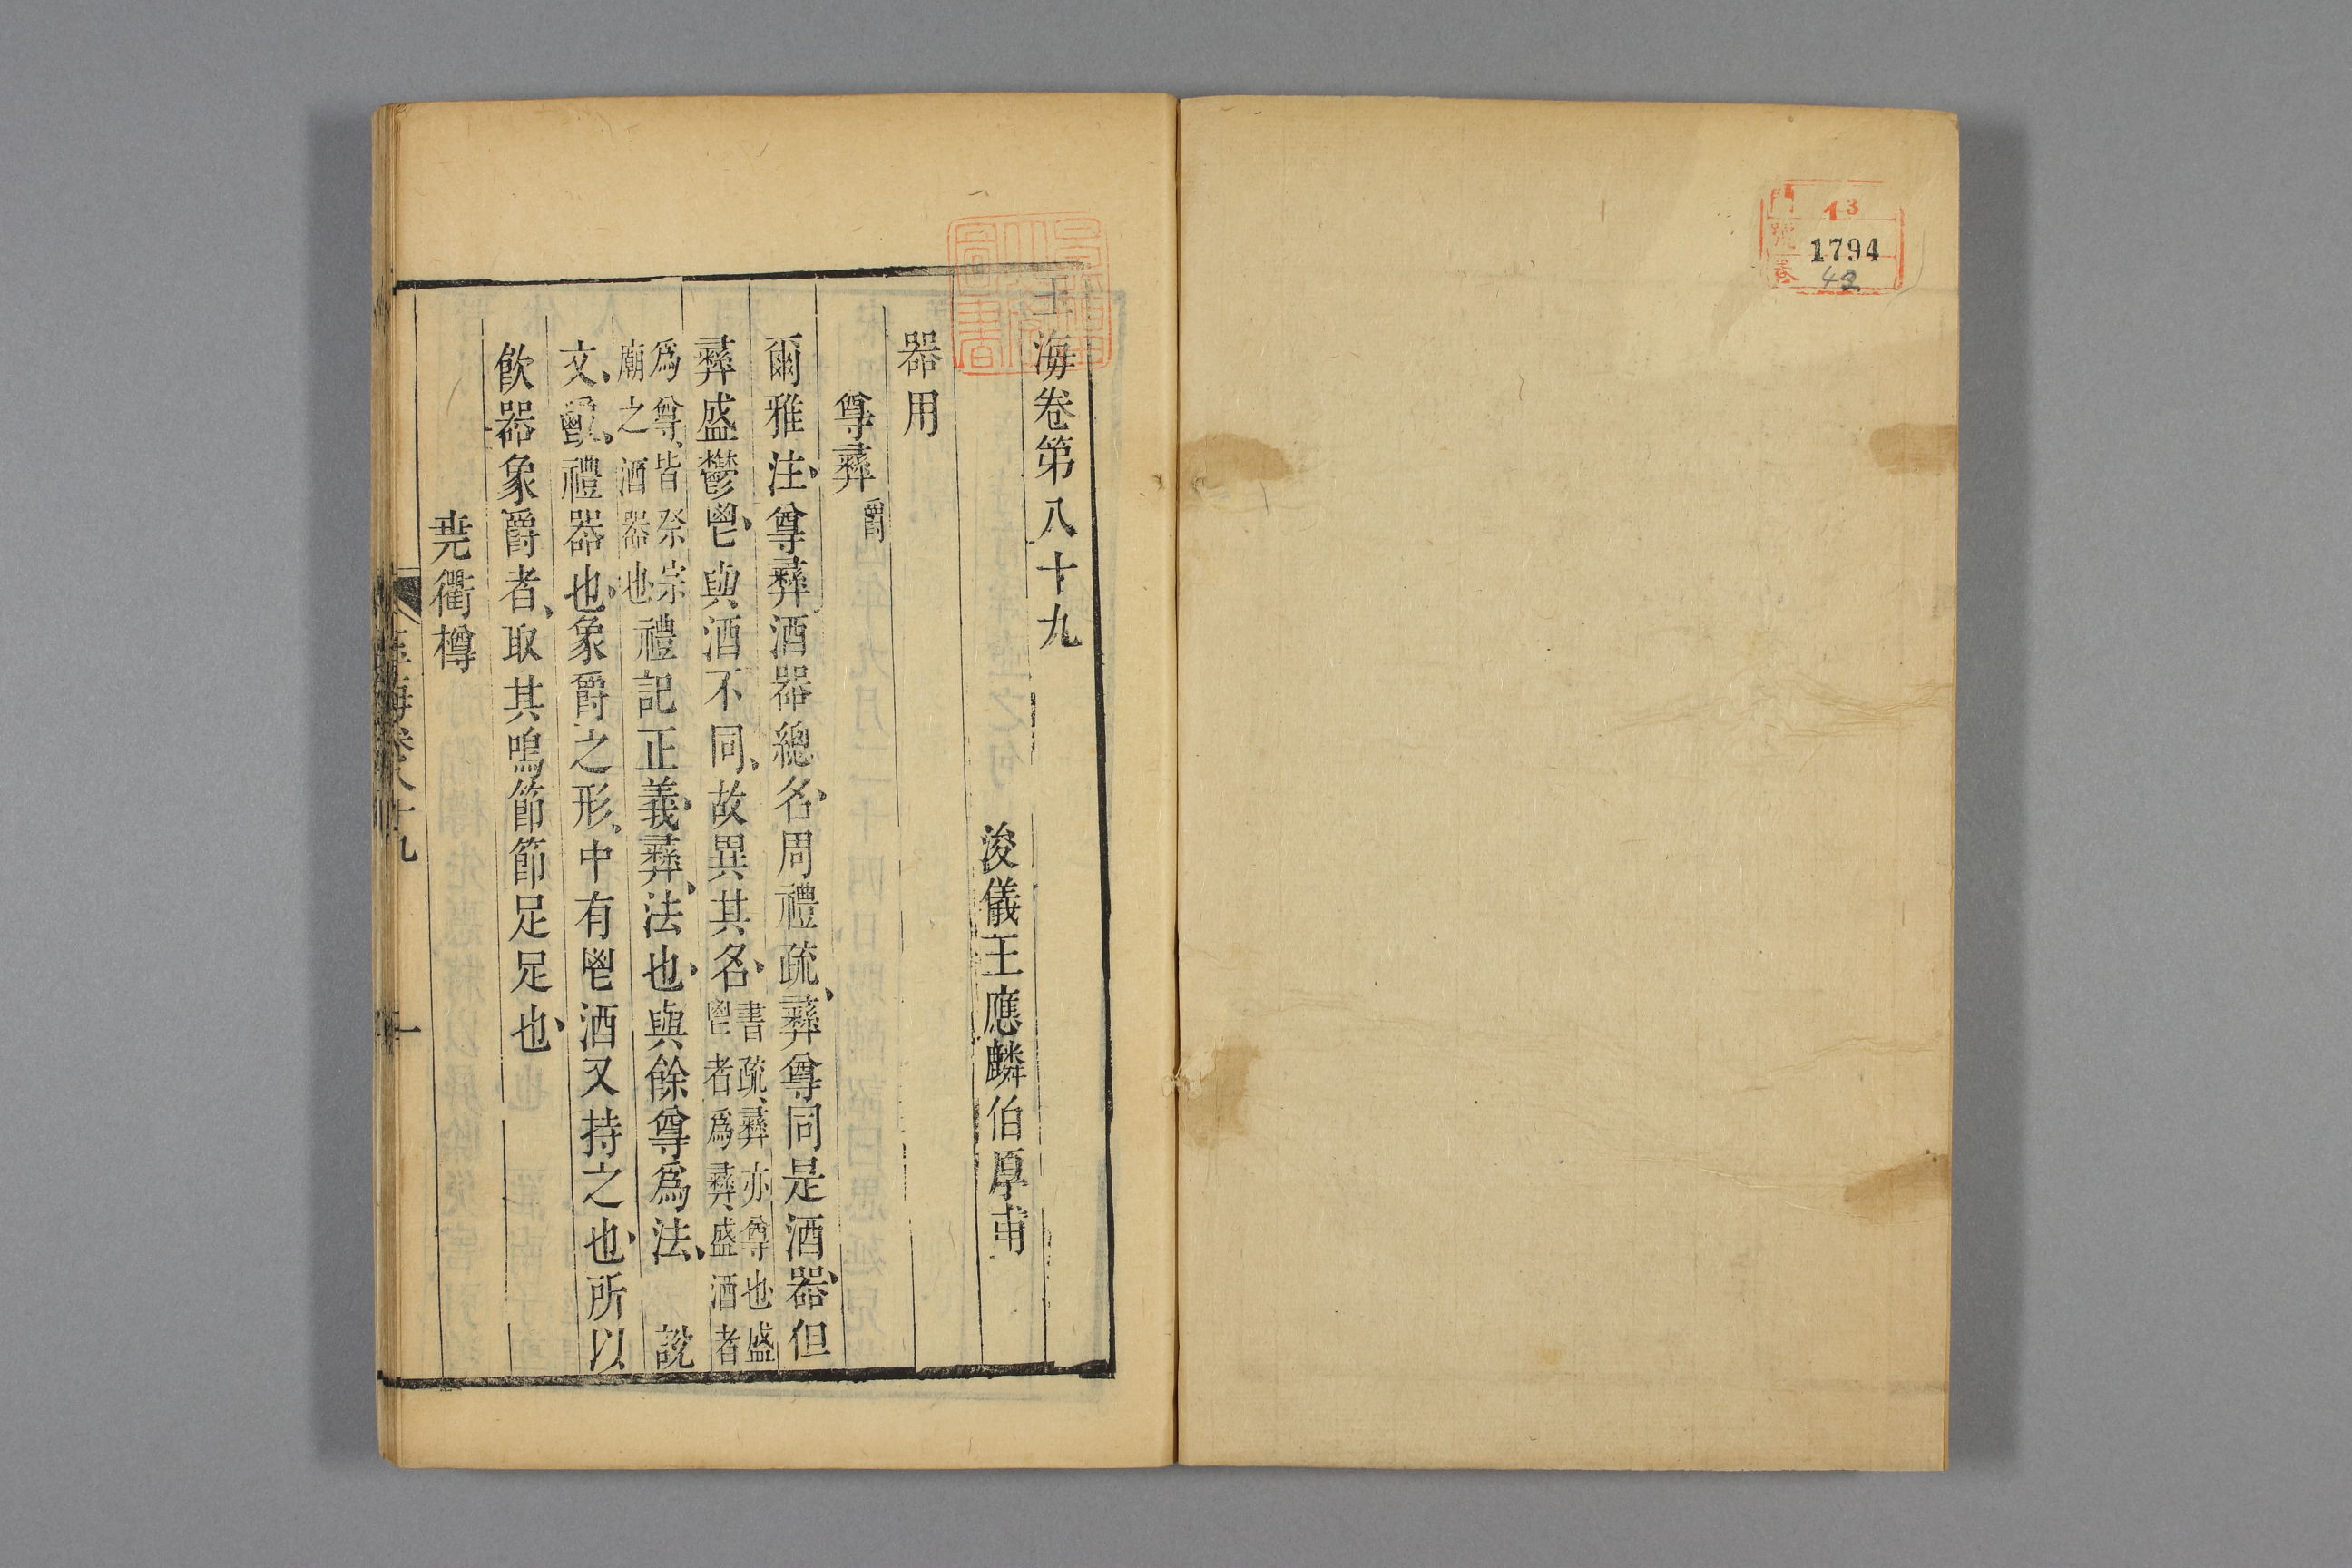 門 13
號 1794
卷 42
玉海卷第八十九
浚儀王應麟伯厚甫
器用
尊彝爵
爾雅注、尊彝酒器總名、周禮疏、彝尊同是酒器、但
彝盛鬱鬯、與酒不同、故異其名、書疏、彝亦尊也盛
鬯者為彝、盛酒者
為尊、皆祭宗
廟之酒器也禮記正義、彝、法也、與餘尊為法、 說
文、爵、禮器也、象爵之形、中有鬯酒又持之也、所以
飲器象爵者、取其鳴節節足足也、
堯衢樽
玉海卷八十九 一